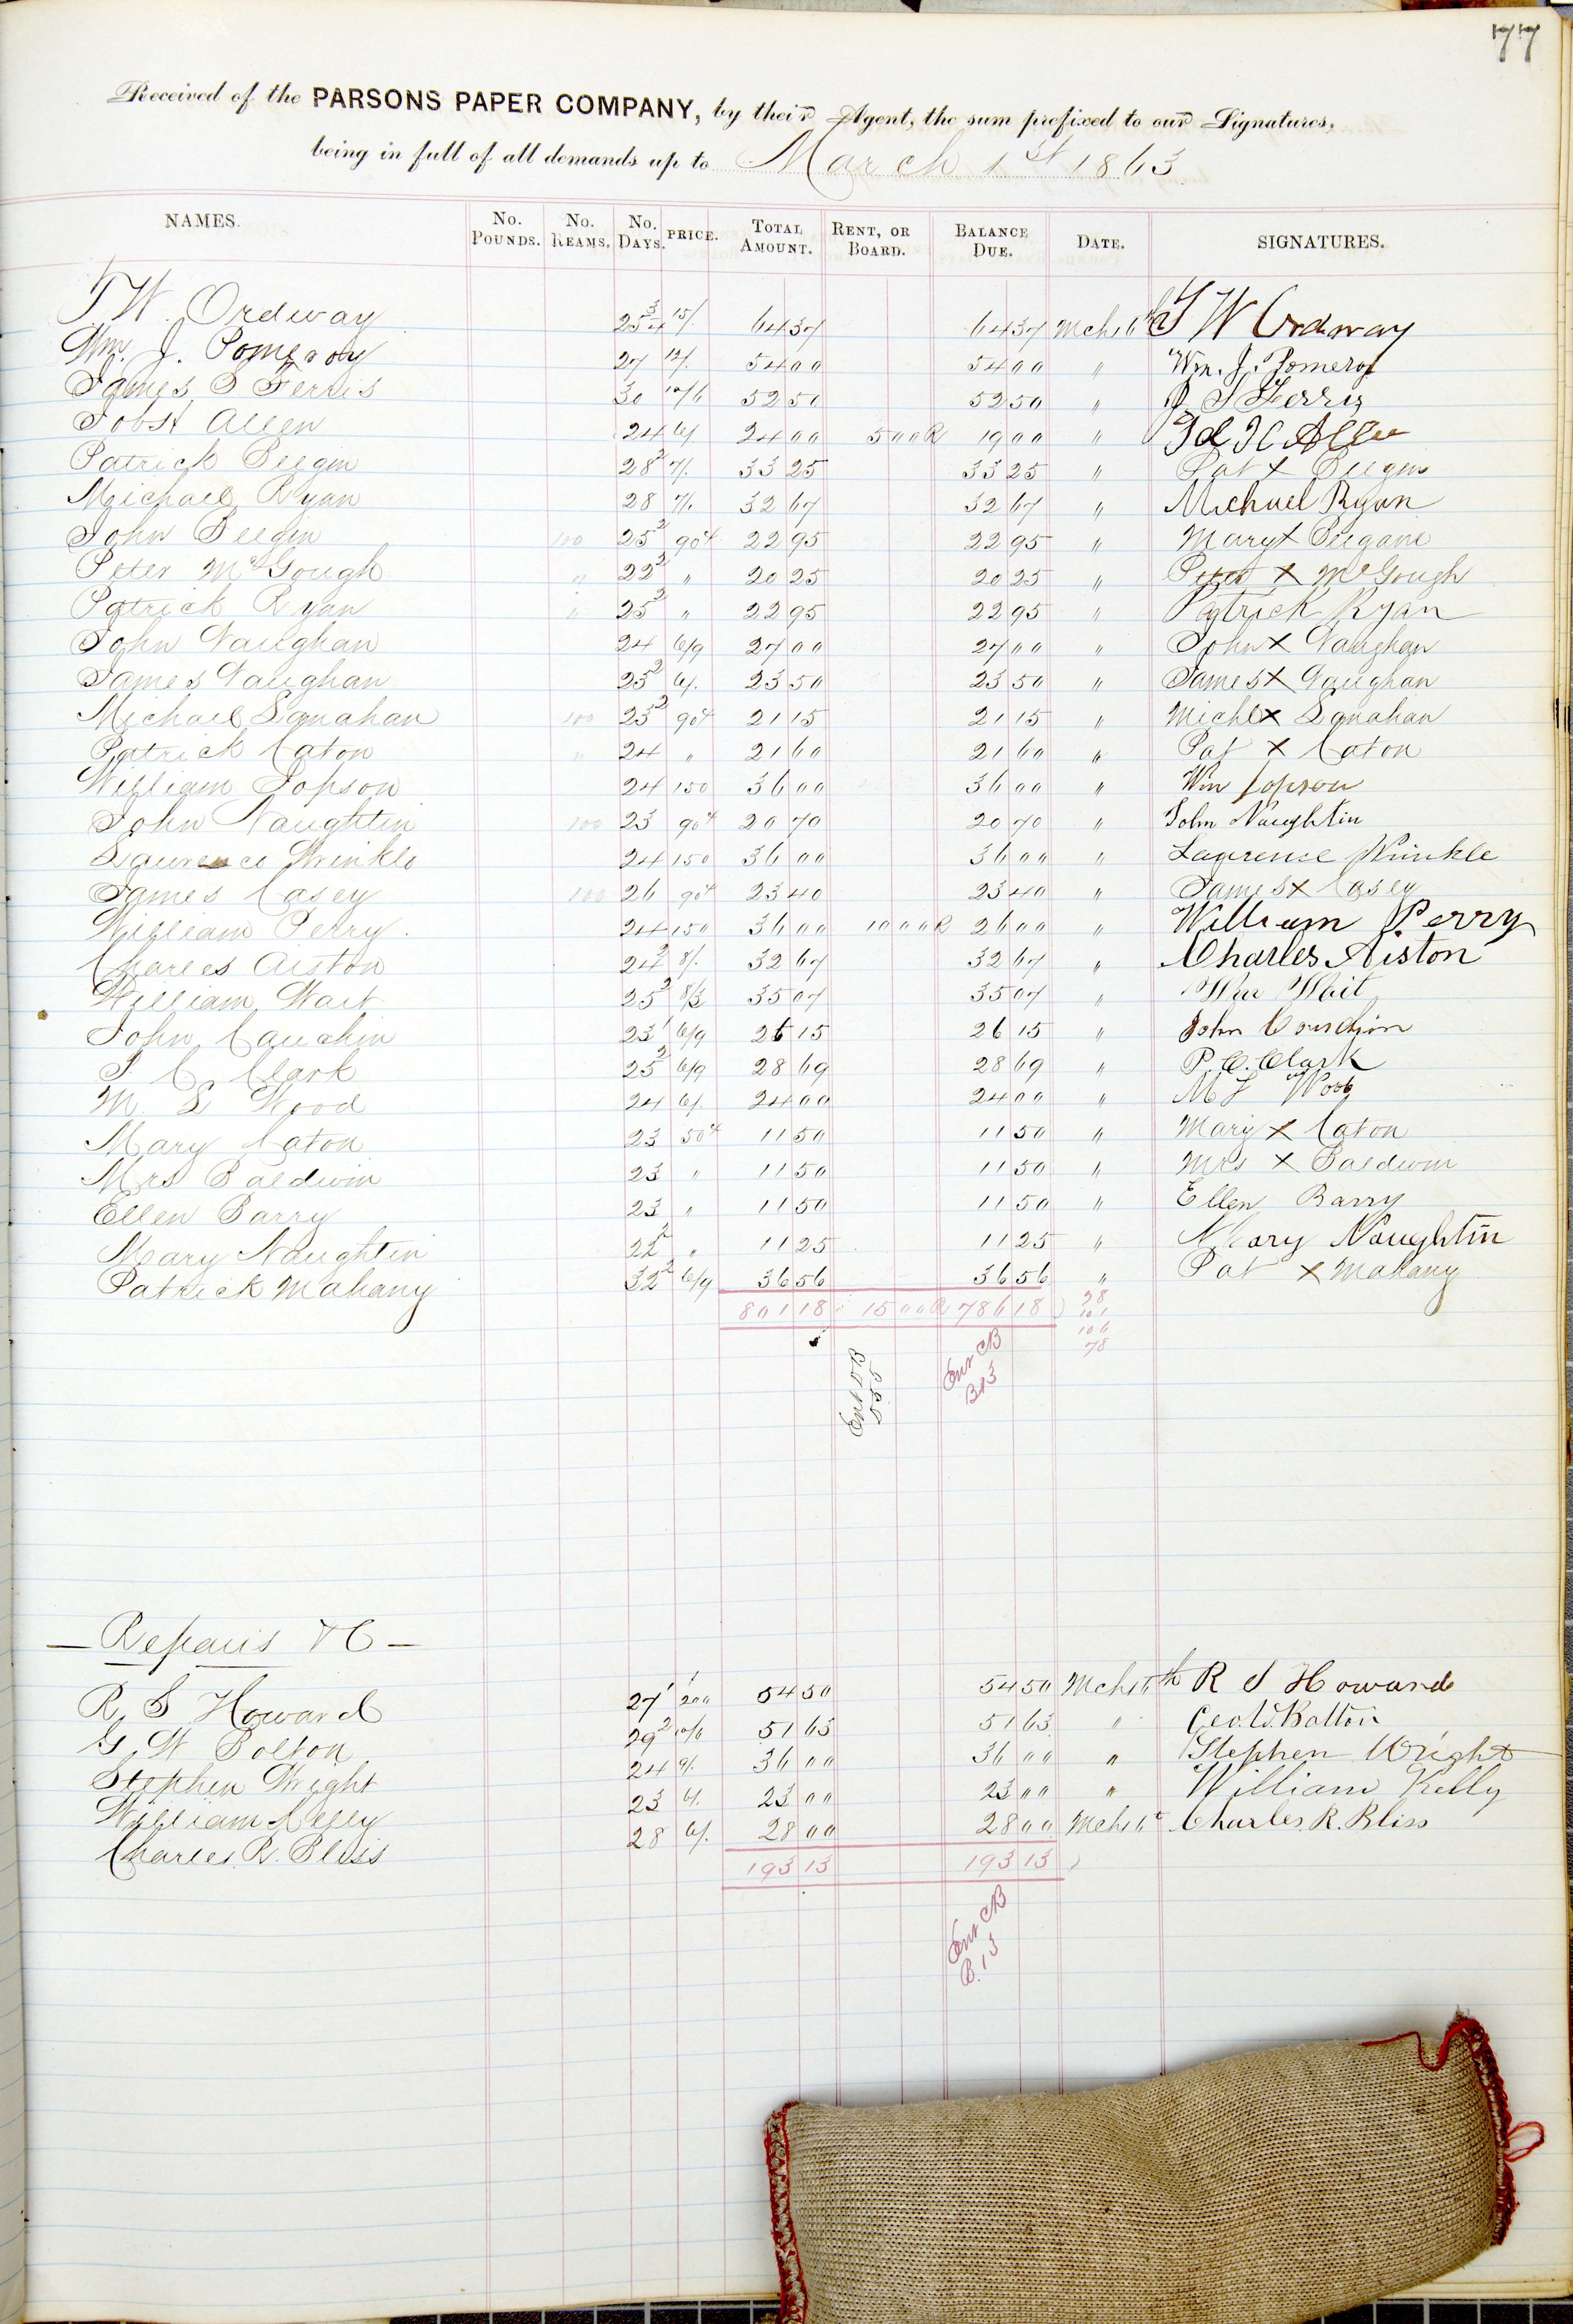 77
Received of the PARSONS PAPER COMPANY, by their Agent, the sum prefixed to our Signatures,
being in full of all demands up to March 1st 1863
NAMES. No. POUNDS. No. REAMS. No. DAYS. PRICE. TOTAL AMOUNT. RENT, OR BOARD. BALANCE DUE. DATE. SIGNATURES.
T W. Ordway 25 3/4 15/. 64 37 64 37 Mch 6th T W Ordway
Wm. J. Pomeroy 27 12/. 54 00 54 00 " Wm. J. Pomeroy
James S Ferris 30 10/6 52 50 52 50 " J S Ferris
Allen 24 6/ 24 00 5 00 R 19 00 "
Patrick Beegin 28 2 7/. 33 25 33 25 " Pat X Beegin
Michael Ryan 28 7/. 32 67 32 67 " Michael Ryan
John Beegin 100 25 2 90c 22 95 22 95 " Mary X Beegane
Peter McGough " 22 2 " 20 25 20 25 " Peter X McGough
Patrick Ryan " 25 2 " 22 95 22 95 " Patrick Ryan
John Vaughan 24 6/9 27 00 27 00 " John X Vaughan
James Vaughan 23 2 6/. 23 50 23 50 " James X Vaughan
Michael Lanahan 100 23 2 90c 21 15 21 15 " Michl X Lanahan
Patrick Caton " 24 " 21 60 21 60 " Pat X Caton
William Jopson 24 150 36 00 36 00 " Wm Jopson
John Naughtin 100 23 90c 20 70 20 70 " John Naughtin
Laurence Wrinkle 24 150 36 00 36 00 " Lawrense Wrinkle
James Casey 100 26 90c 23 40 23 40 " James X Casey
William Perry. 24 150 36 00 10 00 R 26 00 " William Perry
Charles Aiston 24 2 8/. 32 67 32 67 " Charles Aiston
William Wait 25 2 8/3 35 07 35 07 " Wm Wait
John Cauchin 23 1 6/9 26 15 26 15 " John
C Clark 25 2 6/9 28 69 28 69 " P. C. Clark
M. L Wood 24 6/. 24 00 24 00 " M L Wood
Mary Caton 23 50c 11 50 11 50 " Mary X Caton
Mrs Baldwin 23 " 11 50 11 50 " Mrs X Baldwin
Ellen Barry 23 " 11 50 11 50 " Ellen Barry
Mary Naughtin 22 2 " 11 25 11 25 " Mary Naughtin
Patrick Mahany 32 2 6/9 36 56 36 56 " Pat X Mahany
801 18 15 00 R 786 18
98
101
106
78
Ent DB
555
Ent CB
B13
Repairs &C
R. S Howard 27 1 200 54 50 54 50 Mch 6th R S Howard
G. W Bolton 29 2 10/6 51 63 51 63 " Geo. W. Bolton
Stephen Wright 24 9/. 36 00 36 00 " Stephen Wright
William Kelly 23 6/. 23 00 23 00 " William Kelly
Charles R. Bliss 28 6/. 28 00 28 00 Mch 6 Charles R. Bliss
193 13 193 13
Ent CB
B.13